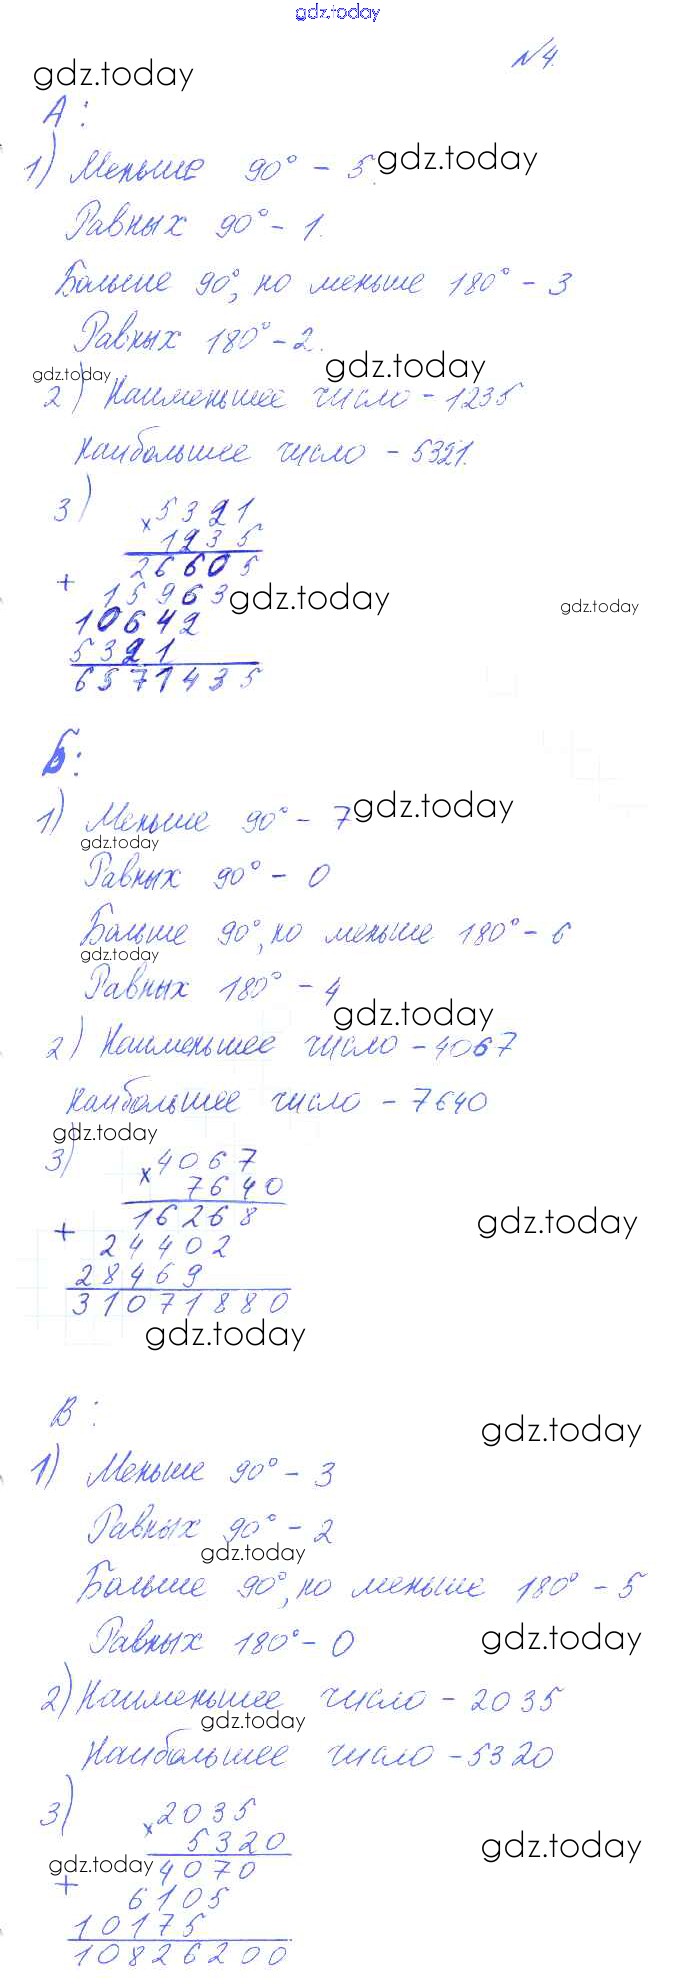 gdz.today
№4.
gdz.today
А:
1) Меньше 90° – 5. gdz.today
Равных 90° – 1.
Больше 90°, но меньше 180° – 3
Равных 180° – 2.
gdz.today
gdz.today
2) Наименьшее число – 1235
Наибольшее число – 5321.
3) × 5321
1235
26605
+ 15963 gdz.today
gdz.today
10642
5321
6571435
Б:
1) Меньше 90° – 7 gdz.today
gdz.today
Равных 90° – 0
Больше 90°, но меньше 180° – 6
gdz.today
Равных 180° – 4
gdz.today
2) Наименьшее число – 4067
Наибольшее число – 7640
gdz.today
3) × 4067
7640
16268 gdz.today
+ 24402
28469
31071880
gdz.today
В:
gdz.today
1) Меньше 90° – 3
Равных 90° – 2
gdz.today
Больше 90°, но меньше 180° – 5
Равных 180° – 0 gdz.today
2) Наименьшее число – 2035
gdz.today
Наибольшее число – 5320
3) × 2035
5320 gdz.today
gdz.today 4070
+ 6105
10175
10826200